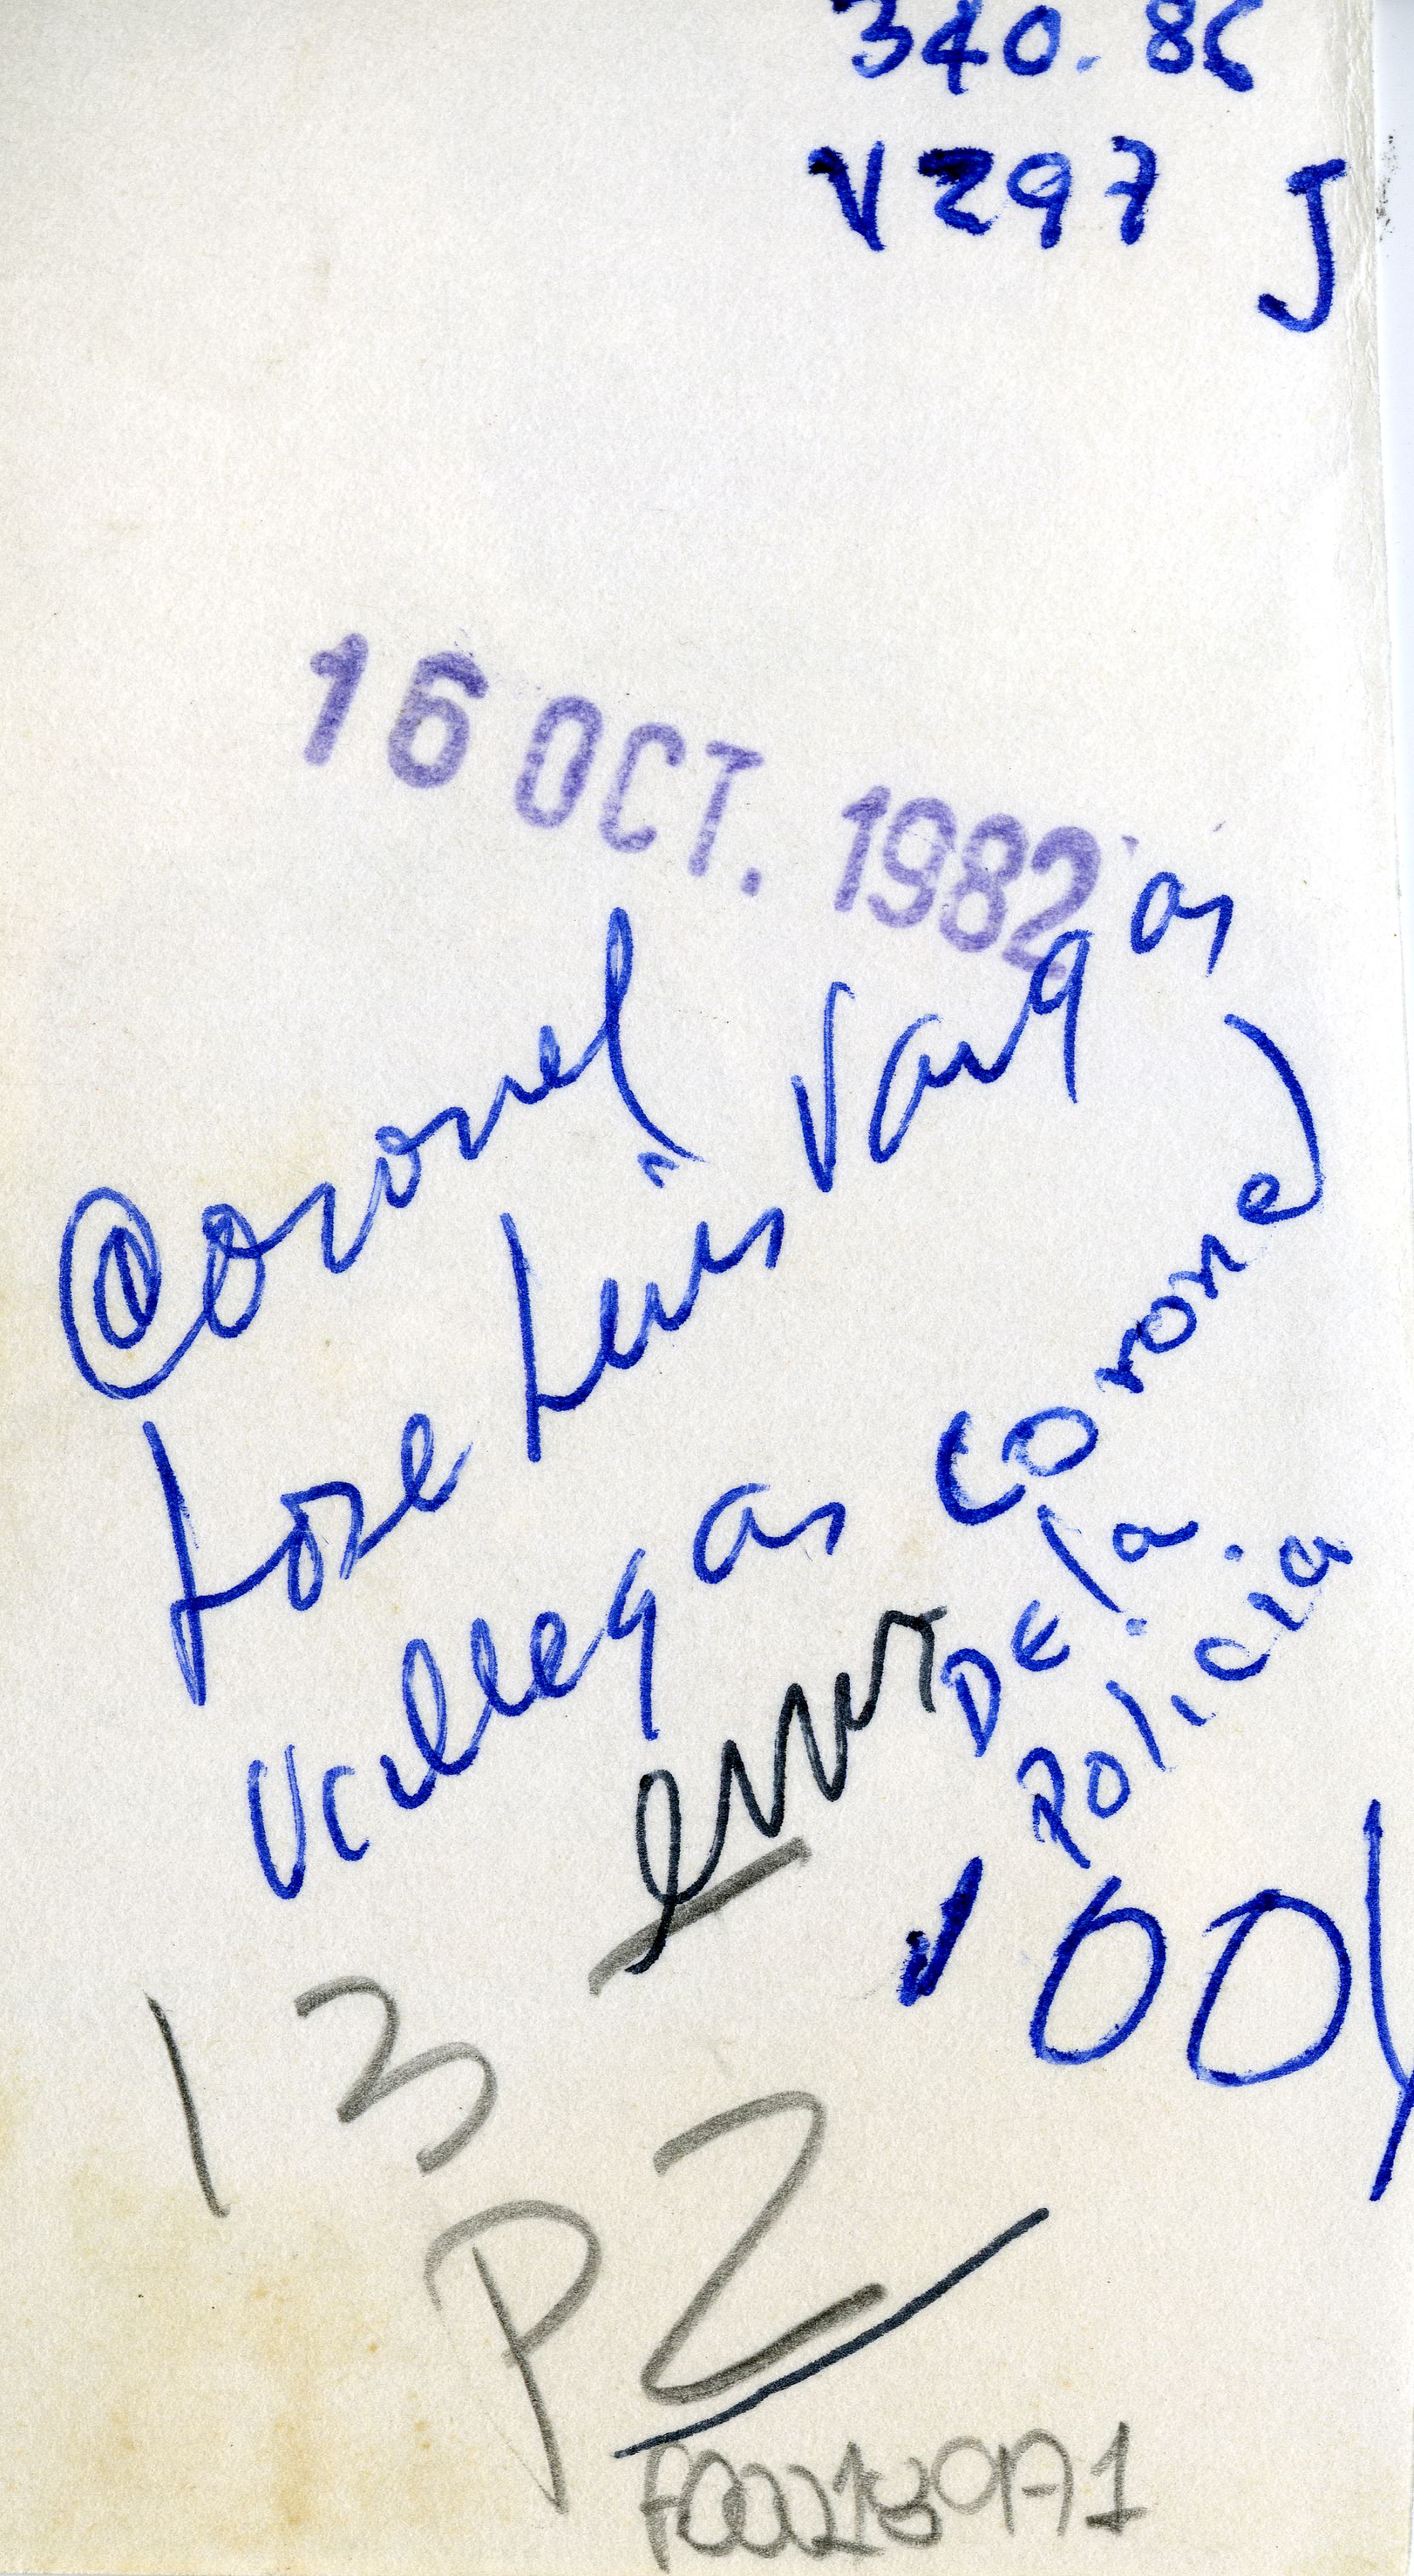 340.86
V297 J
16 OCT. 1982
Coronel
Jose Luis Vargas
Villegas
Coronel
De la
Policia
001
13
P2